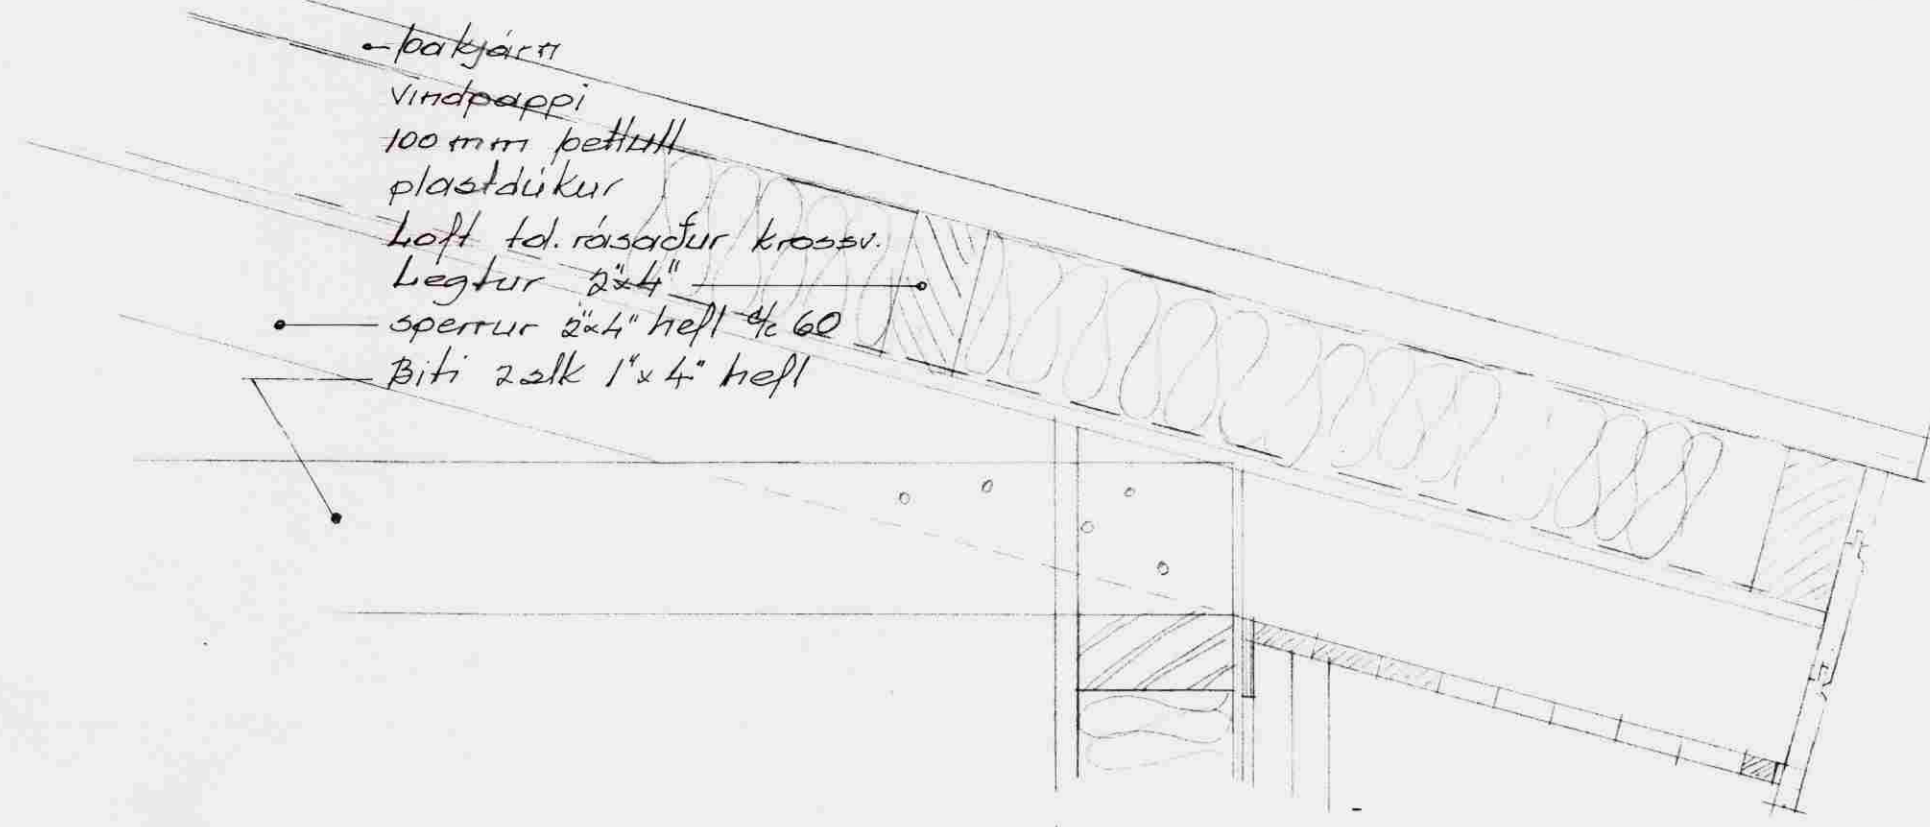 þakjárn
vindpappi
100 mm þettull
plastdúkur
Loft td. rásaður krossv.
Legtur 2"x4"
sperrur 2"x4" hefl c/c 60
Biti 2 stk 1"x4" hefl